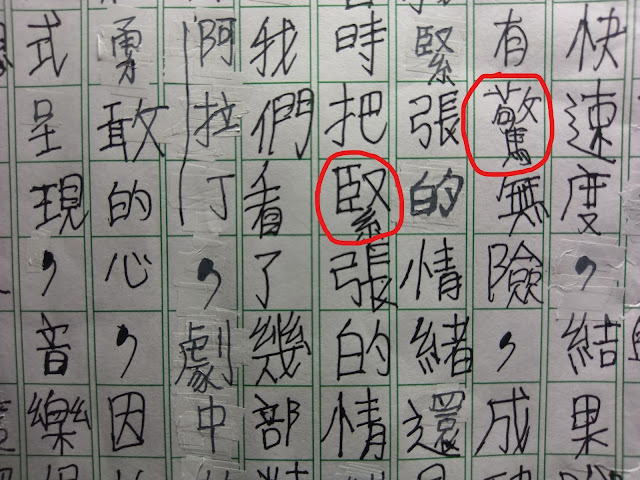 快速度，結果
有驚無險，成
緊張的情緒還
時把緊張的情
我們看了幾部
阿拉丁，劇中
勇敢的心，因
式呈現，音樂